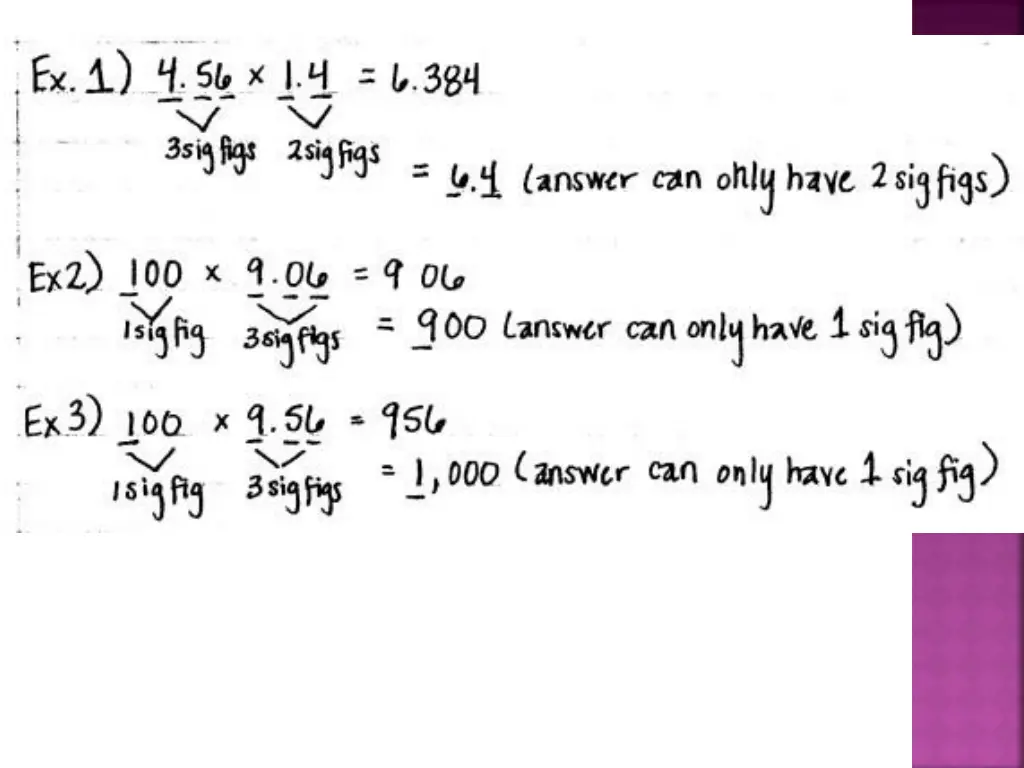 Ex. 1) 4.56 x 1.4 = 6.384
3 sig figs 2 sig figs
= 6.4 (answer can only have 2 sig figs)
Ex2) 100 x 9.06 = 9 06
1 sig fig 3 sig figs
= 900 (answer can only have 1 sig fig)
Ex3) 100 x 9.56 = 956
1 sig fig 3 sig figs
= 1,000 (answer can only have 1 sig fig)